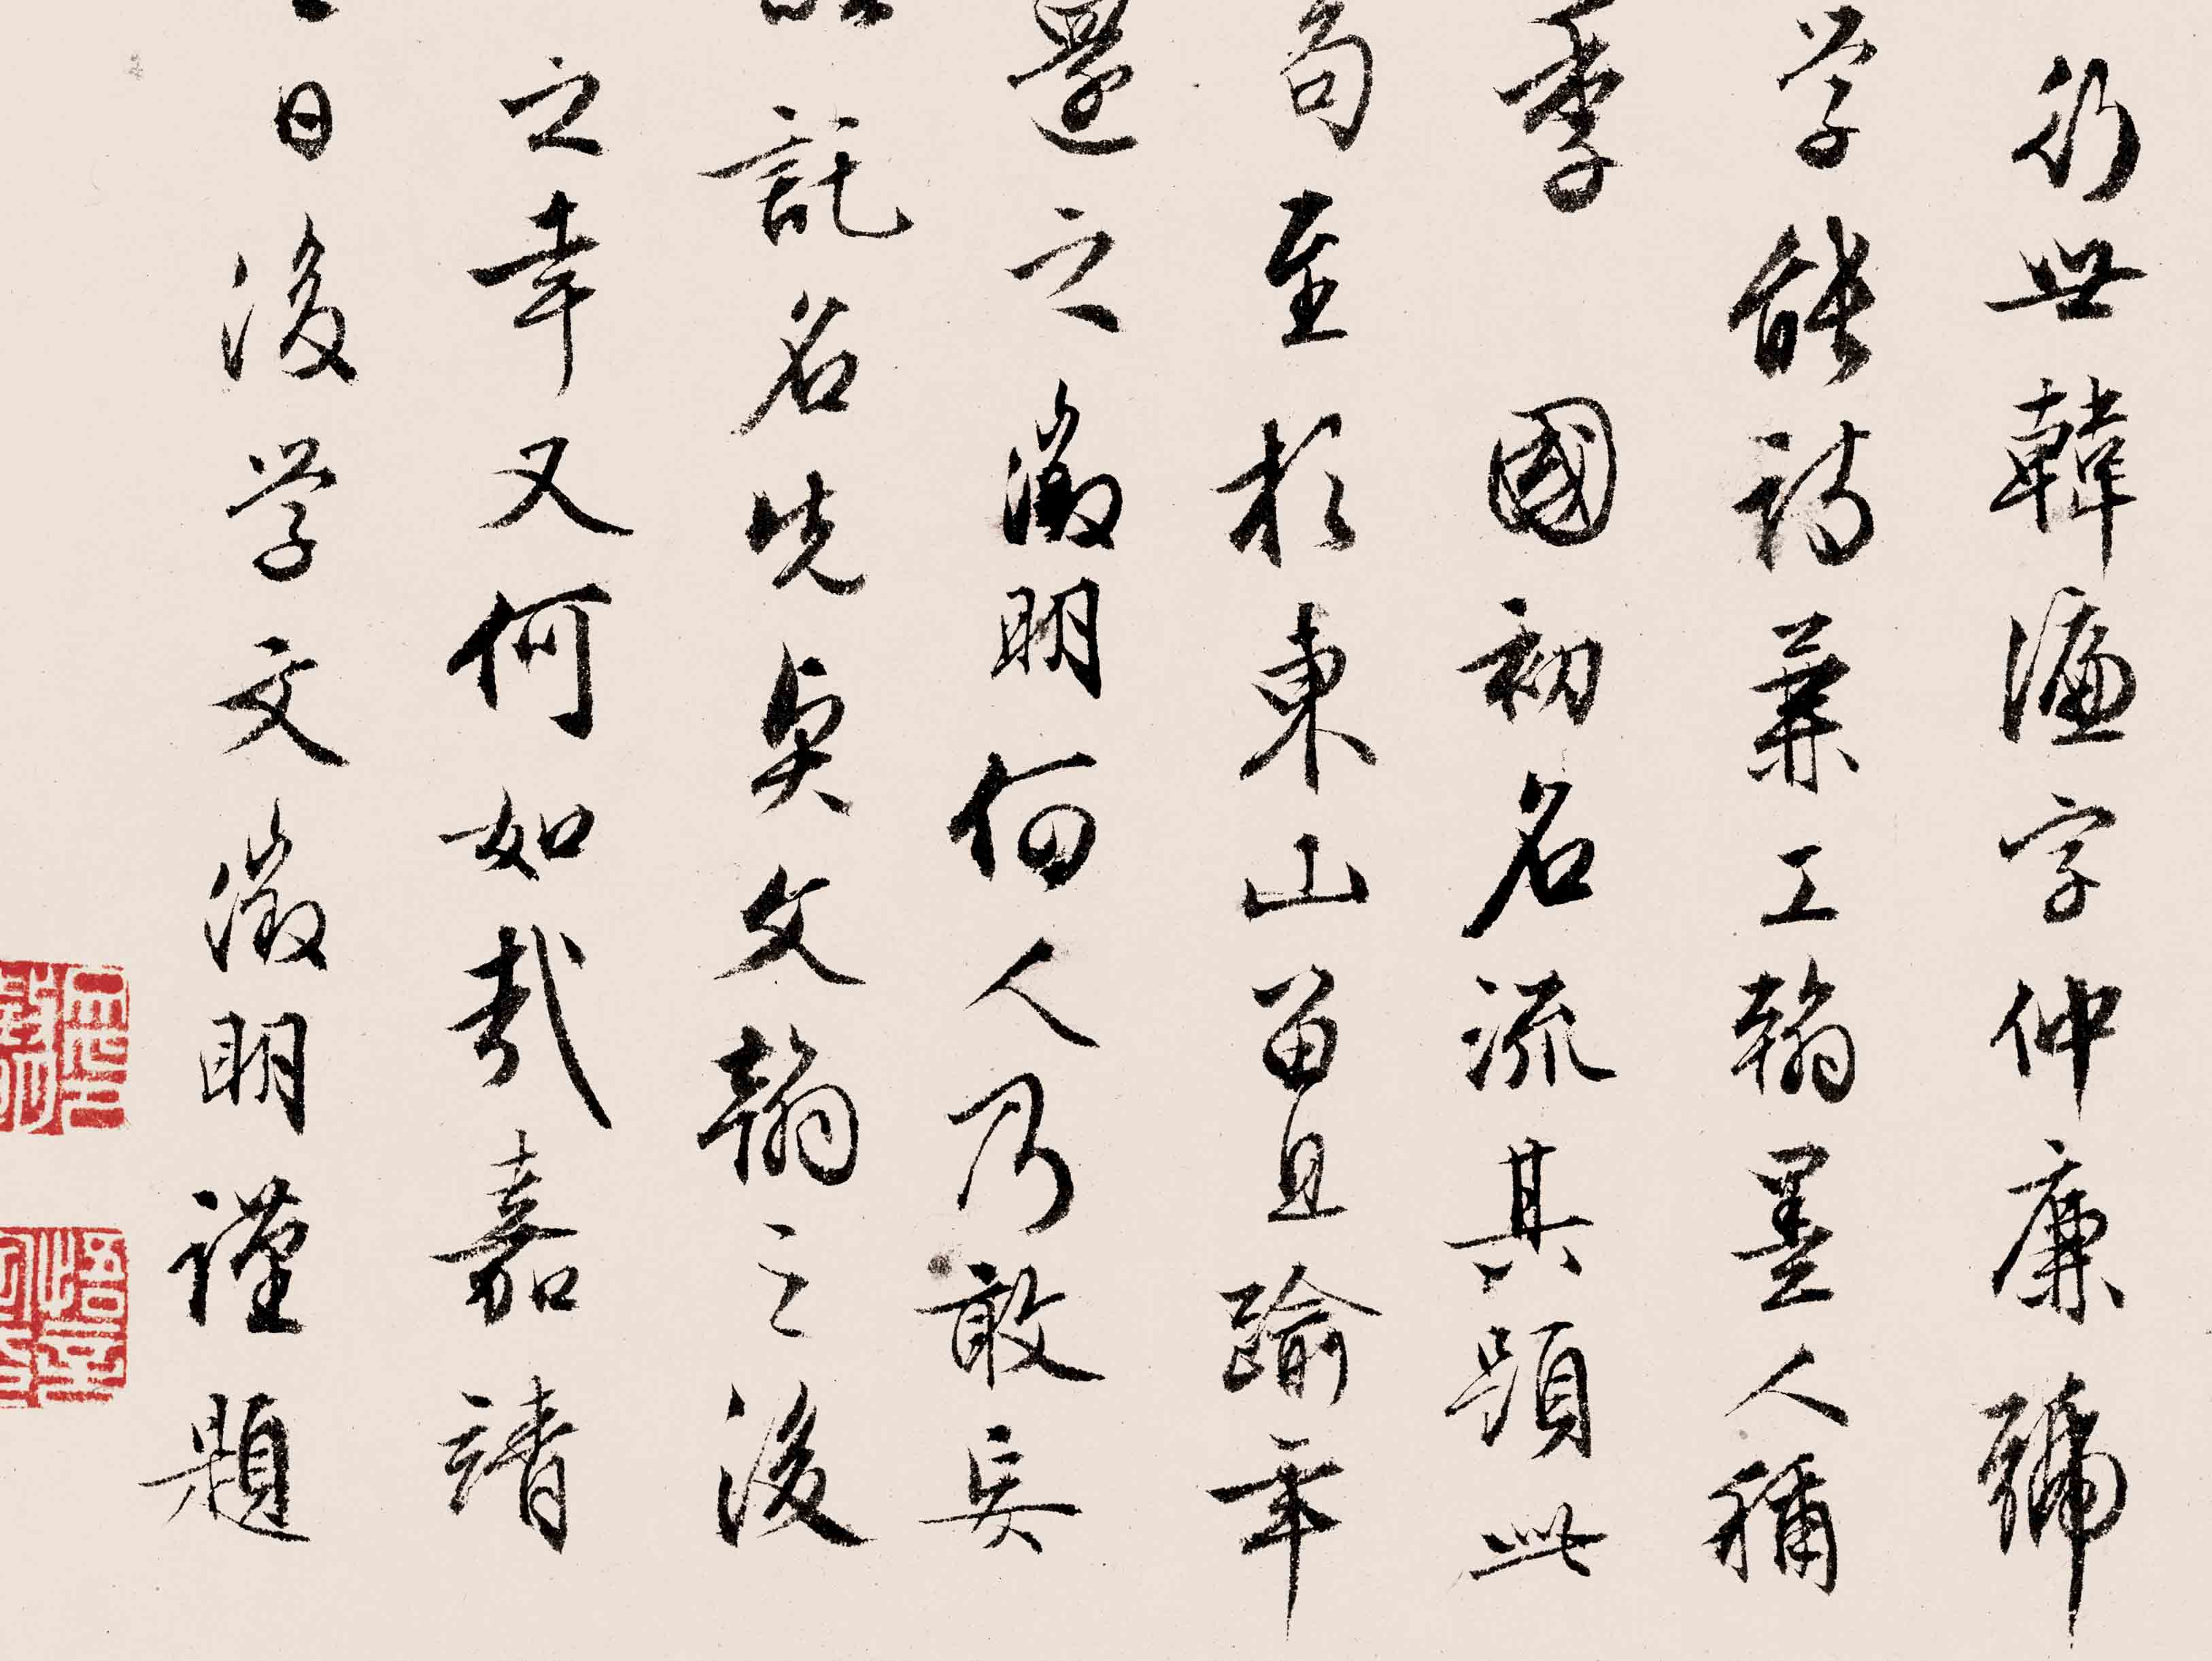 行世韓濂字仲廉號
学能詩兼工翰墨人稱
季 國初名流其題此
至於東山留且踰年
還之徵明何人乃敢妄
託名先賢文翰之後
之幸又何如哉嘉靖
日後学文徵明謹題